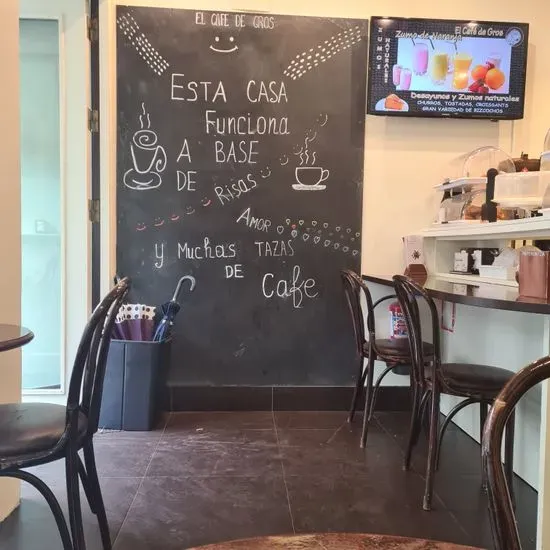 EL CAFE DE GROS
ESTA CASA
FUNCIONA
A BASE
DE
Risas
AMOR
Y MUCHAS TAZAS
DE
Cafe
El Café de Gros
Zumo de Naranja
ZUMOS NATURALES
Desayunos y Zumos naturales
CHURROS, TOSTADAS, CROISSANTS
GRAN VARIEDAD DE BIZCOCHOS